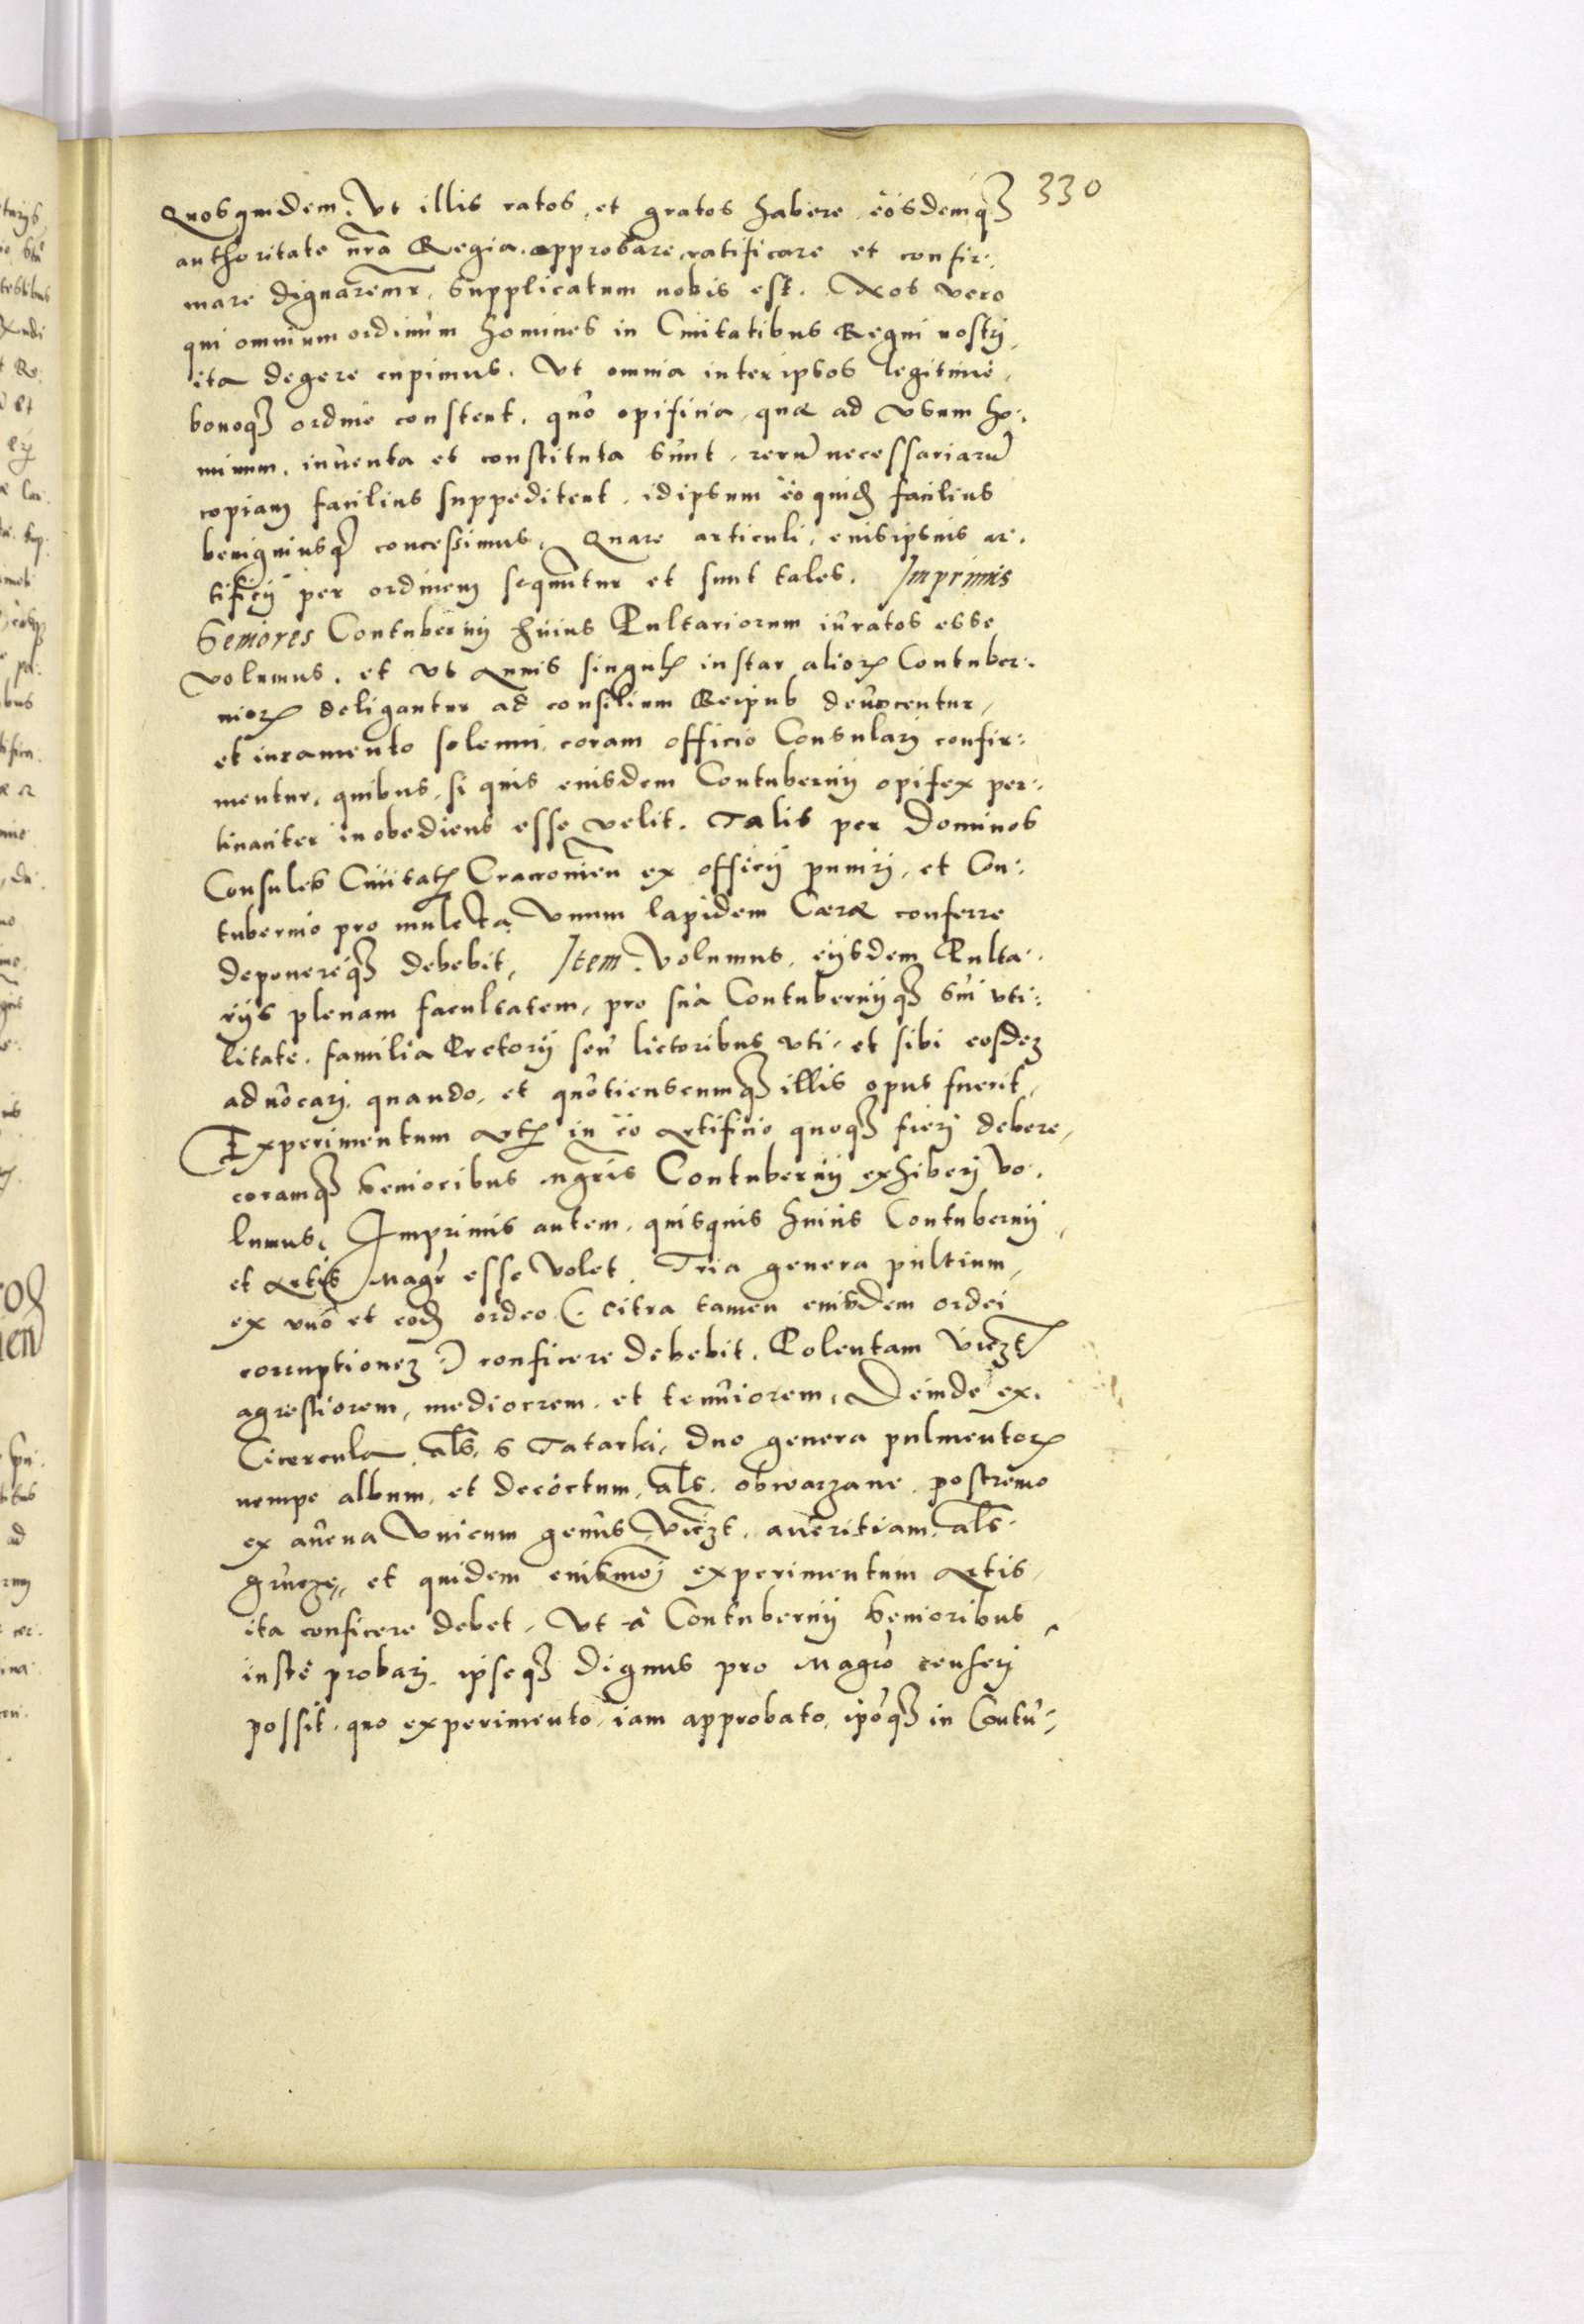 330
Quosquidem. Ut illis ratos, et gratos habere, eosdemq3
authoritate nrã Regia. approbare, ratificare et confir:
mare dignaremr, supplicatum nobis est. Nos vero
qui omnium ordinum homines in Ciuitatibus Regni nostrj,
ita degere cupimus. Ut omnia inter ipsos legitimè,
bonoq3 ordine constent, quò opificia, quæ ad vsum ho:
minum, inuenta et constituta sunt, rerũ necessariarũ
copiam facilius suppeditent, idipsum eò quid facilius
benigniusq3 concessimus. Quare articuli, euisipsuis ar:
tificij per ordinem sequntur et sunt tales. Jmprimis
Seniores Contubernij huius Pultariorum iuratos esse
volumus, et vt Annis singulis instar alior Contuber:
nior deligantur ad consilium Reipub deuocentur,
et iuramento solemni, coram officio Consularj confir:
mentur, quibus, si quis euisdem Contubernij opifex per:
tinaciter inobediens esse velit. Talis per Dominos
Consules Ciuitat Cracouien ex officij punirj, et Con:
tubernio pro mulcta Vnum lapidem Cæræ conferre
deponereq3 debebit, Jtem. Volumus, eijsdem Pulta:
rijs plenam facultatem, pro sua Contubernijq3 sui vti:
litate, familia Prætorij seu lictoribus vti, et sibi eosdez
aduocarj, quando, et quotienscumq3 illis opus fuerit,
Experimentum Art in eo Artificio quoq3 fierj debere,
coramq3 Senioribus Mgris Contubernij exhiberj vo:
lumus, Imprimis autem, quisquis huius Contubernij,
et Artis Magr esse volet. Tria genera pultium,
ex vno et eod ordeo (: citra tamen euisdem ordei
corruptionez :) conficere debebit. Polentam viczt
agrestiorem, mediocrem, et tenuiorem, Deinde ex.
Cicercula, als. s Tatarki, duo genera pulmentor
nempe album, et decoctum, als. obwarzane, postremo
ex auena Vnicum genus, viczt. aueritiam, als.
gruczę, et quidem euiusmoj experimentum Artis,
ita conficere debet, Vt à Contubernij Senioribus
iustè probarj, ipseq3 dignus pro Magro censerj
possit, quo experimento, iam approbato, ipoq3 in Contu: